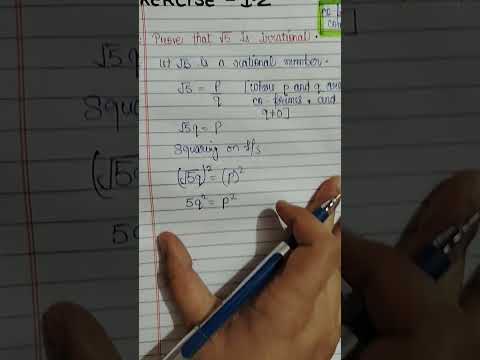 Exercise - 1.2
Prove that √5 is irrational.
Let √5 is a rational number.
√5 = p/q [where p and q are
co-primes, and
q≠0]
√5q = p
Squaring on b/s
(√5q)² = (p)²
5q² = p²